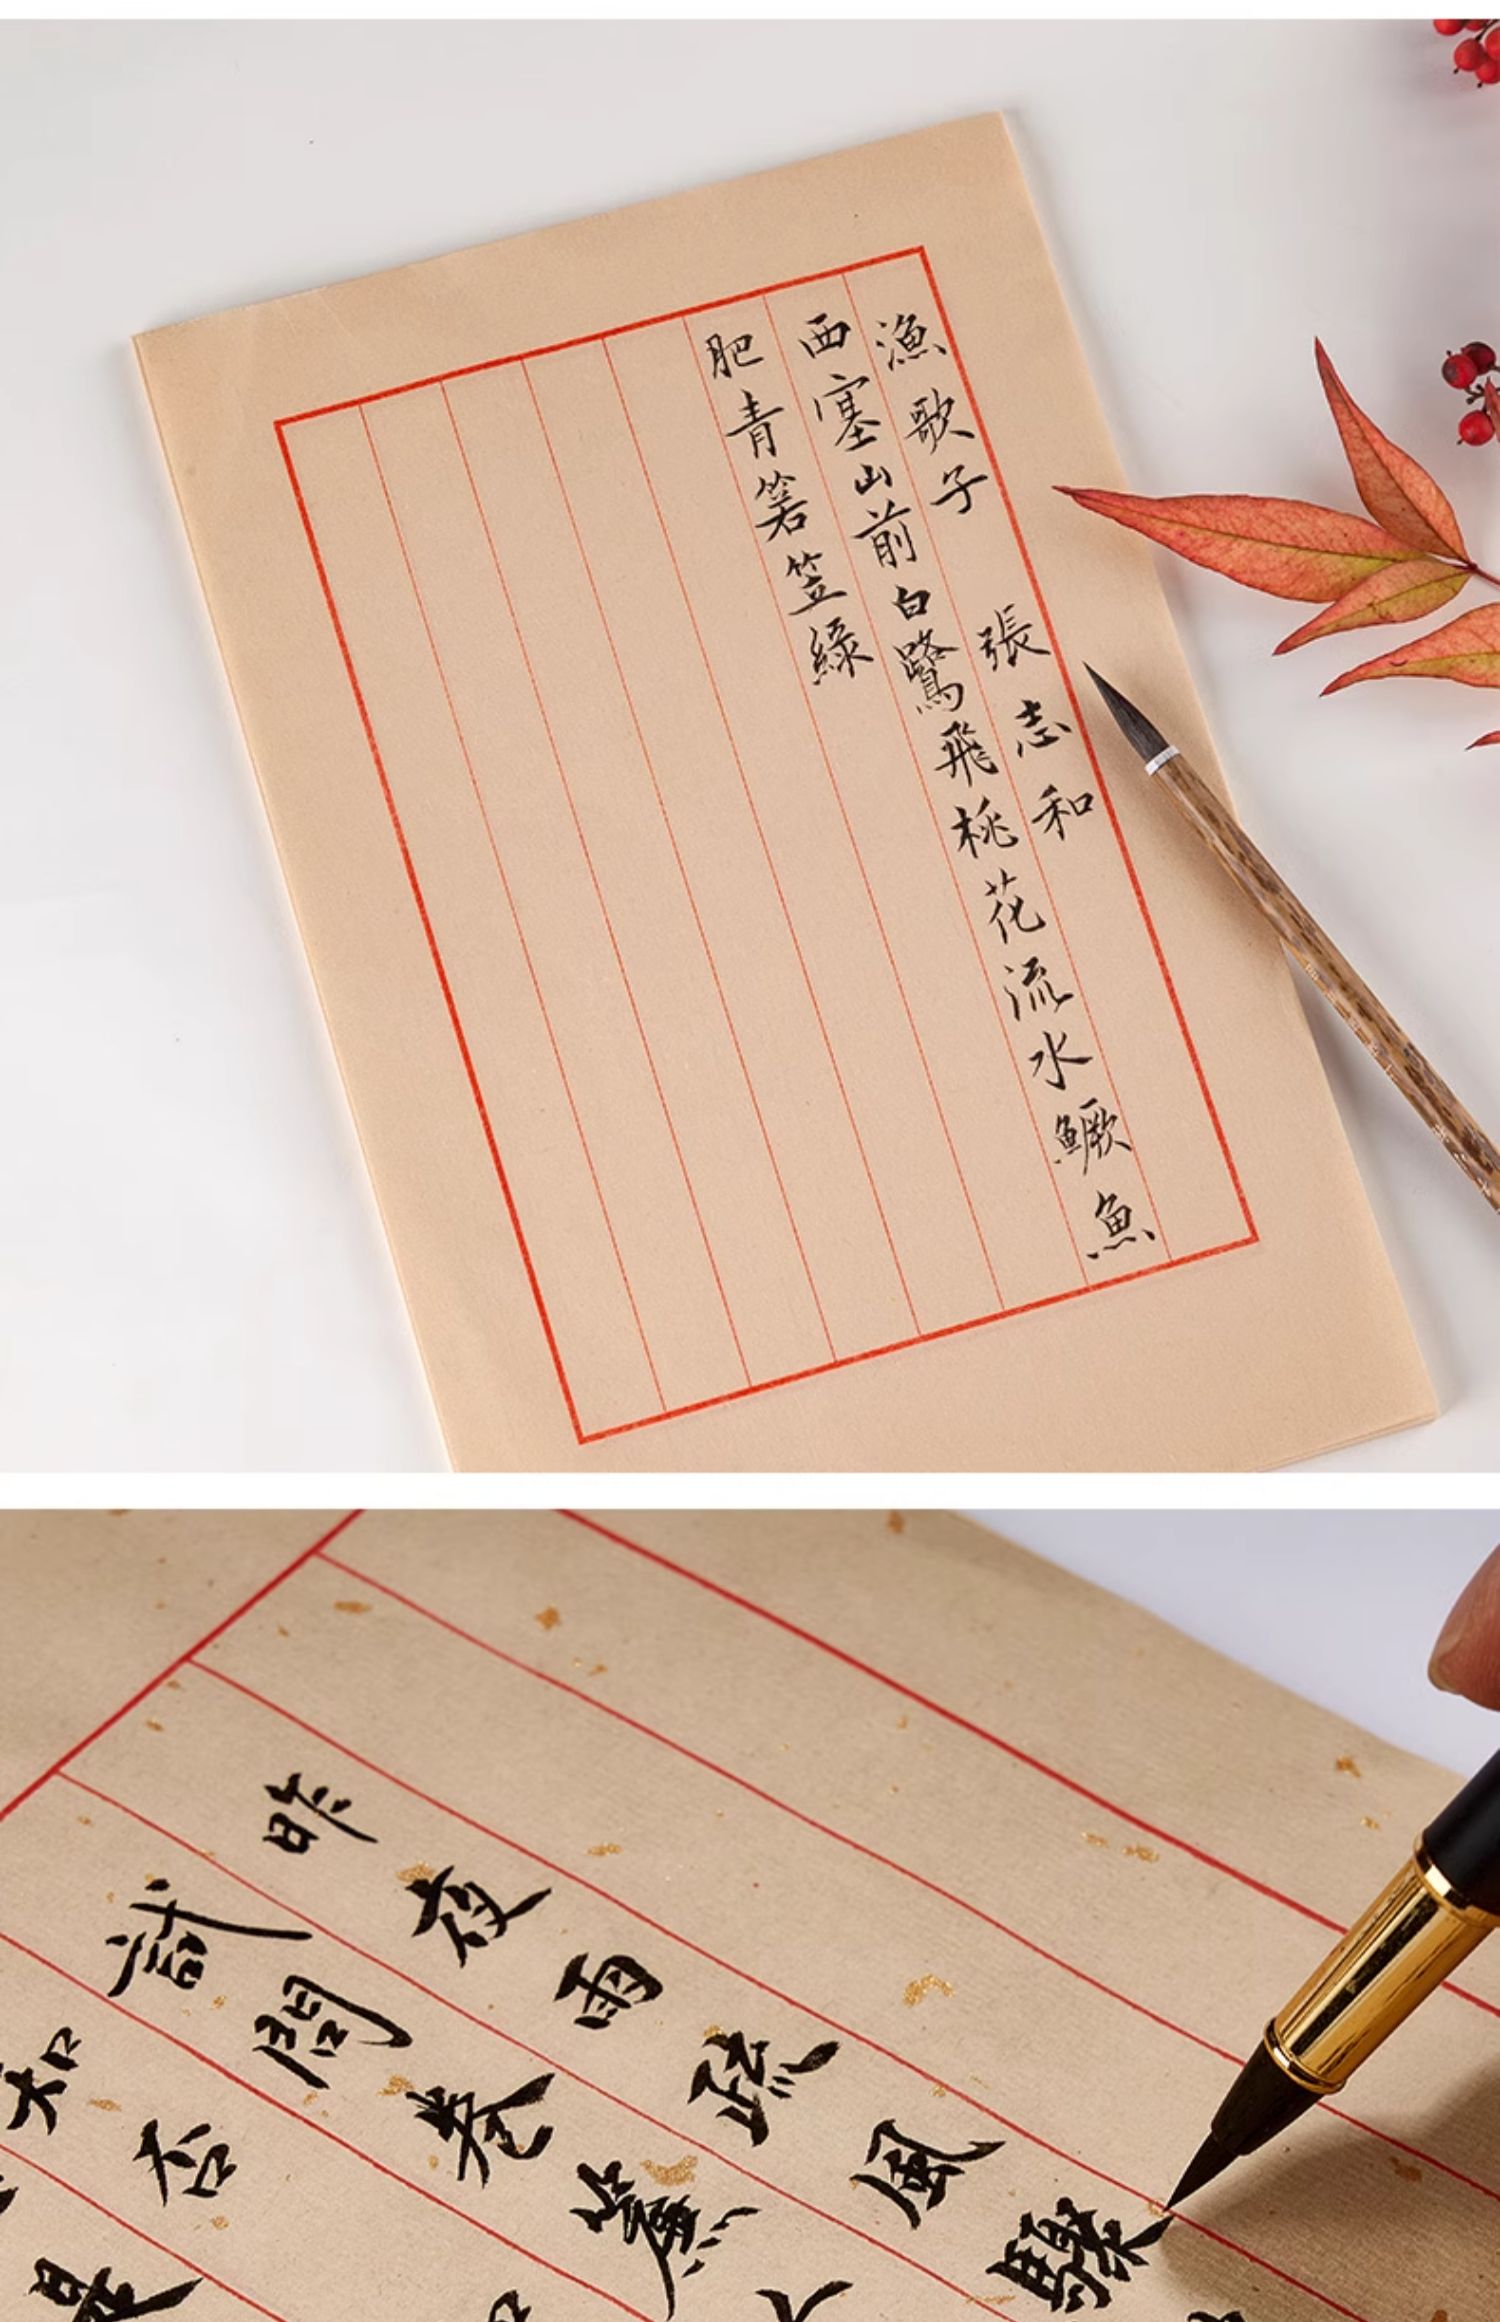 漁歌子 張志和
西塞山前白鷺飛桃花流水鱖魚
肥青箬笠綠
昨夜雨疏風驟
試問卷簾人
知否